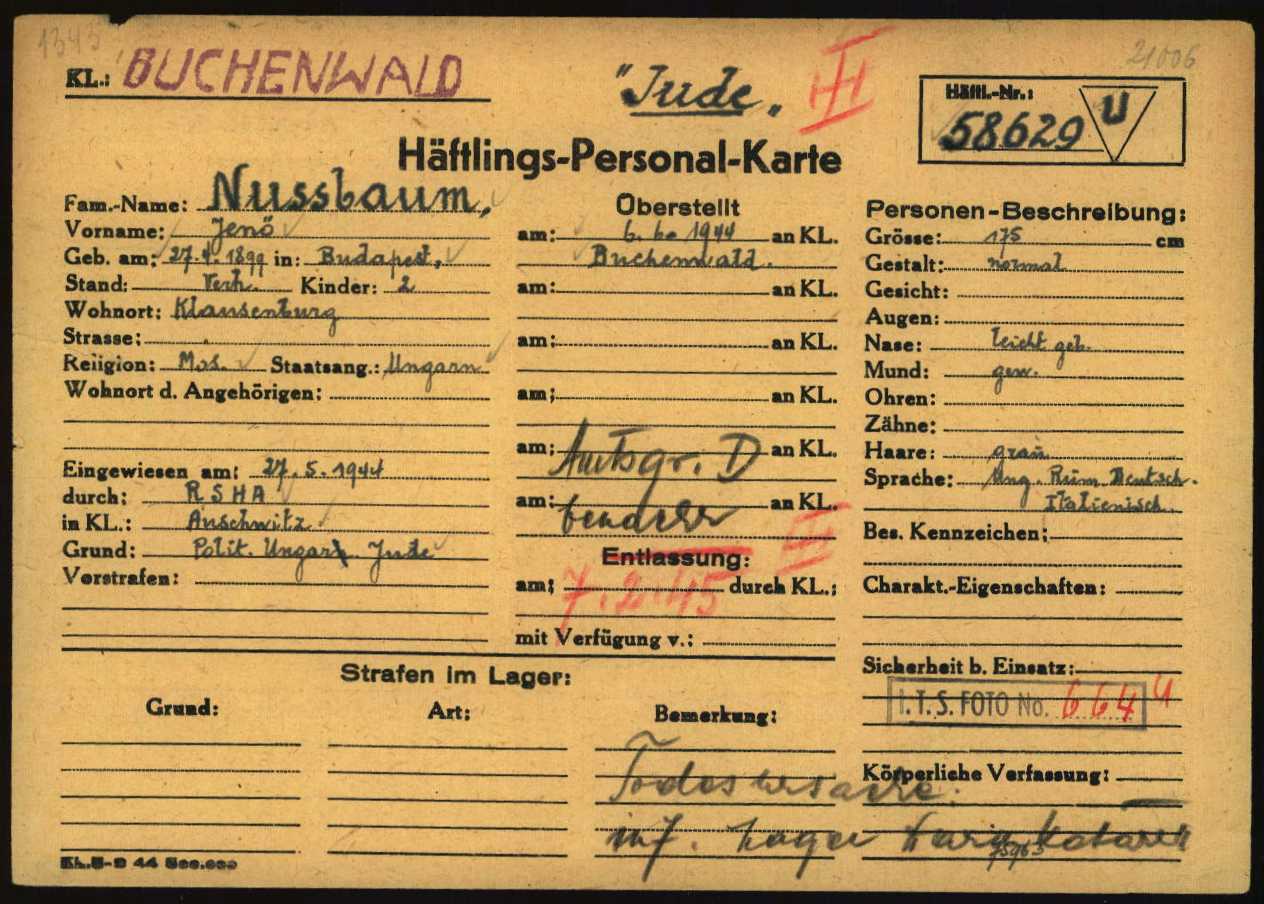 1343
21006
KL.: BUCHENWALD
"Jude"
III
Häftl.-Nr.:
58629 U
Häftlings-Personal-Karte
Fam.-Name: Nussbaum,
Vorname: Jenö
Geb. am: 27.4.1899 in: Budapest,
Stand: Verh. Kinder: 2
Wohnort: Klausenburg
Strasse:
Religion: Mos. Staatsang.: Ungarn
Wohnort d. Angehörigen:
Eingewiesen am: 27.5.1944
durch: RSHA
in KL.: Auschwitz
Grund: Polit. Ungar Jude
Vorstrafen:
Überstellt
am: 6.6. 1944 an KL.
Buchenwald.
am: an KL.
am: an KL.
am: an KL.
am: an KL.
Amtsgr. D
am: an KL.
III
Entlassung:
am: 7.2.45 durch KL.:
mit Verfügung v.:
Personen-Beschreibung:
Grösse: 175 cm
Gestalt: normal
Gesicht:
Augen:
Nase: leicht geb.
Mund: gew.
Ohren:
Zähne:
Haare: grau
Sprache: Ung. Rüm. Deutsch.
Italienisch.
Bes. Kennzeichen:
Charakt.-Eigenschaften:
Sicherheit b. Einsatz:
I.T.S. FOTO No. 6644
Körperliche Verfassung:
Strafen im Lager:
Grund: Art: Bemerkung:
Todesursache:
inf. Lager